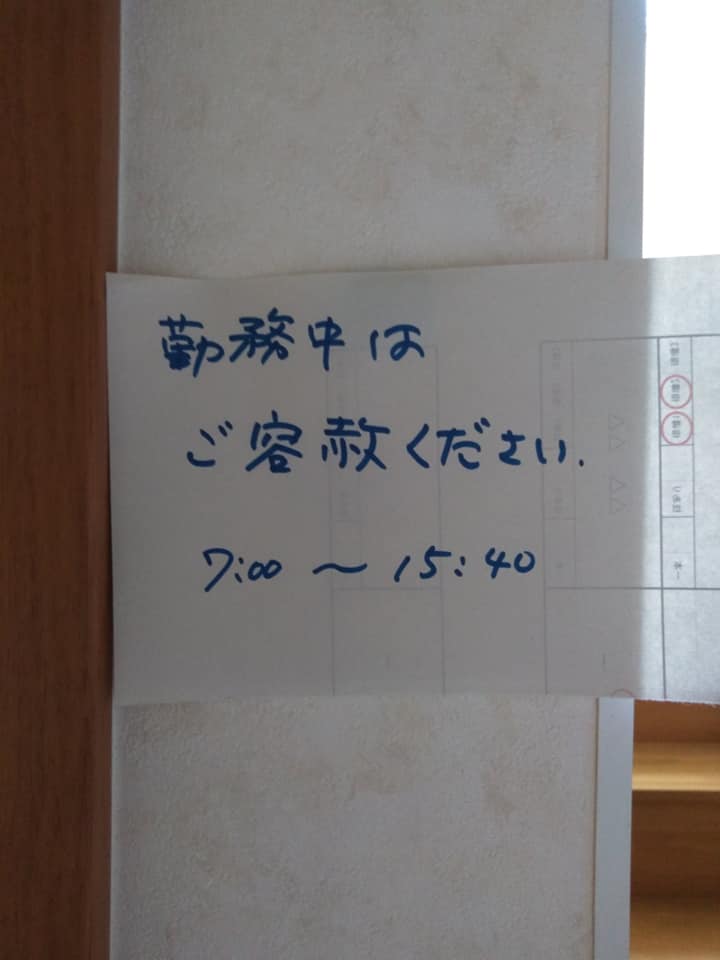 勤務中は
ご容赦ください.
7:00 〜 15:40